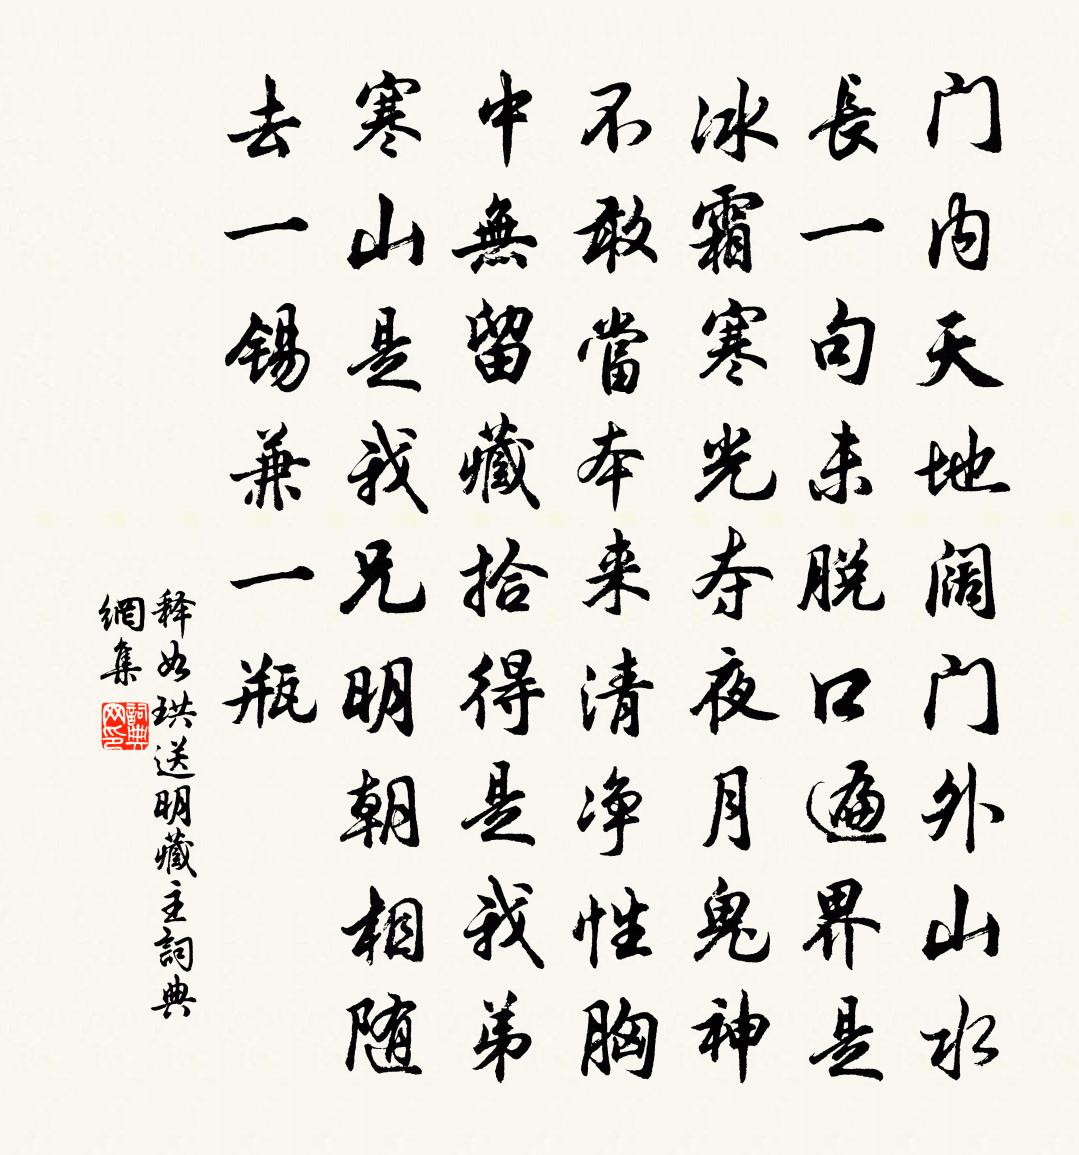 门内天地阔门外山水
長一句未脱口遍界是
冰霜寒光夺夜月鬼神
不敢當本来清净性胸
中無留藏拾得是我弟
寒山是我兄明朝相随
去一锡兼一瓶
释如珙送明藏主詞典
網集
詞典网印